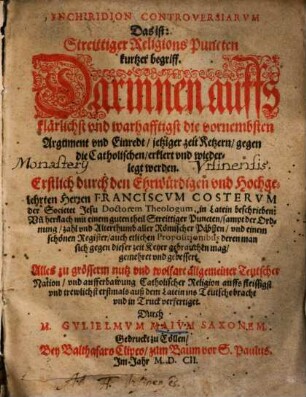 ENCHIRIDION CONTROVERSIARVM
Das ist:
Streittiger Religions Puncten
kurtzer begriff.
Darinnen auffs
klärlichst vnd warhafftigst die vornembsten
Argument vnd Einredt / jetziger zeit Ketzern / gegen
die Catholischen / erklert vnd wieder-
legt werden.
Monastery
Erstlich durch den Ehrwürdigen vnd Hochge-
lehrten Herren FRANCISCVM COSTERVM
der Societet Jesu Doctorem Theologum, in Latein beschrieben:
Nu hernach mit einem guten theil Streittiger Puncten / sampt der Ord-
nung / zahl vnd Alterthumb aller Römischer Päbsten / vnd einem
schönen Register / auch etlichen Propositionibus, deren man
sich gegen dieser zeit Ketzer gebrauchen mag /
gemehret vnd gebessert.
Alles zu grösserm nutz vnd wolfart allgemeiner Teutscher
Nation / vnd aufferbawung Catholischer Religion auffs fleissigst
vnd trewlichst erstmals auß dem Latein ins Teutsch bracht
vnd in Truck verfertiget.
Durch
M. GVLIELMVM MAIVM SAXONEM.
Gedruckt zu Cöllen /
Bey Balthasaro Clipeo / zum Baum vor S. Paulus.
Im Jahr M. D. CII.